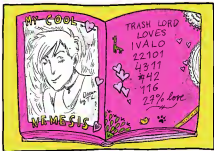 MY COOL
NEMESIS
TRASH LORD
LOVES
IVALO
22101
4311
$42
116
27% love